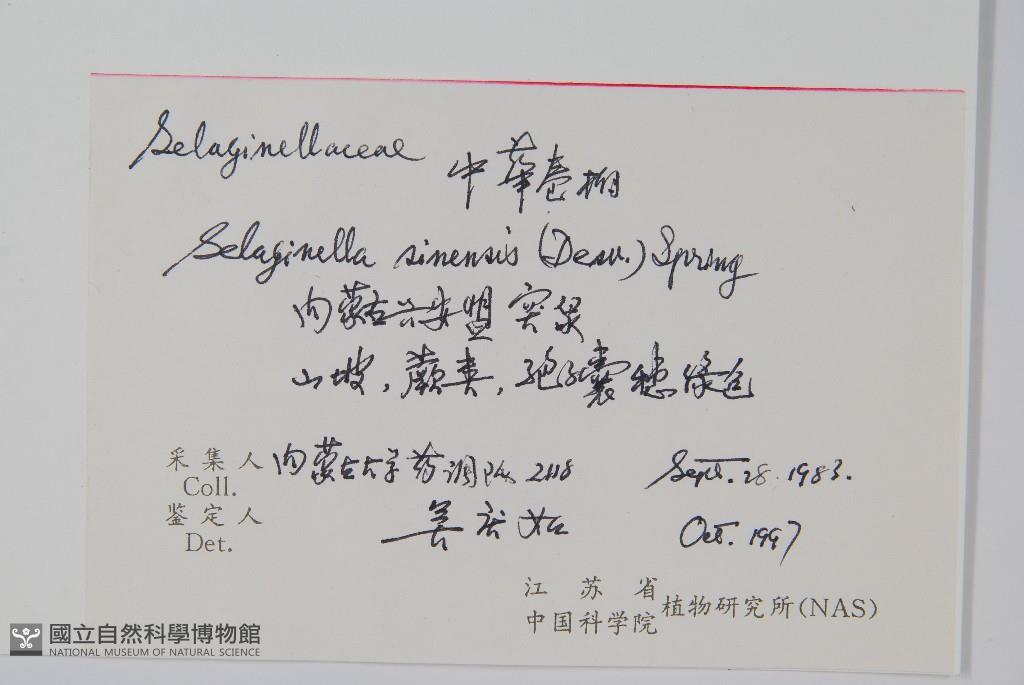 Selaginellaceae 中華卷柏
Selaginella sinensis (Desv.) Spring
内蒙古兴安盟 突泉
山坡，蕨类，孢子囊穗绿色
采集人 内蒙古大学药调队 2118 Sept. 28. 1983.
Coll.
鉴定人
Det. Oct. 1997
江苏省
中国科学院 植物研究所(NAS)
國立自然科學博物館
NATIONAL MUSEUM OF NATURAL SCIENCE